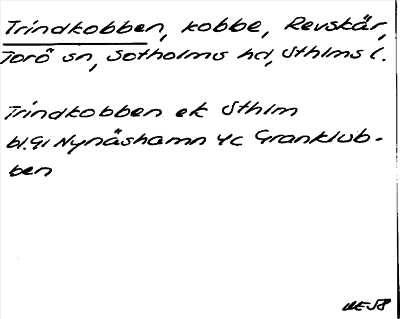 Trindkobben, kobbe, Revskär,
Torö sn, Sotholms hd, Sthlms l.
Trindkobben ek Sthlm
bl. 91 Nynäshamn 4c Granklub-
ben